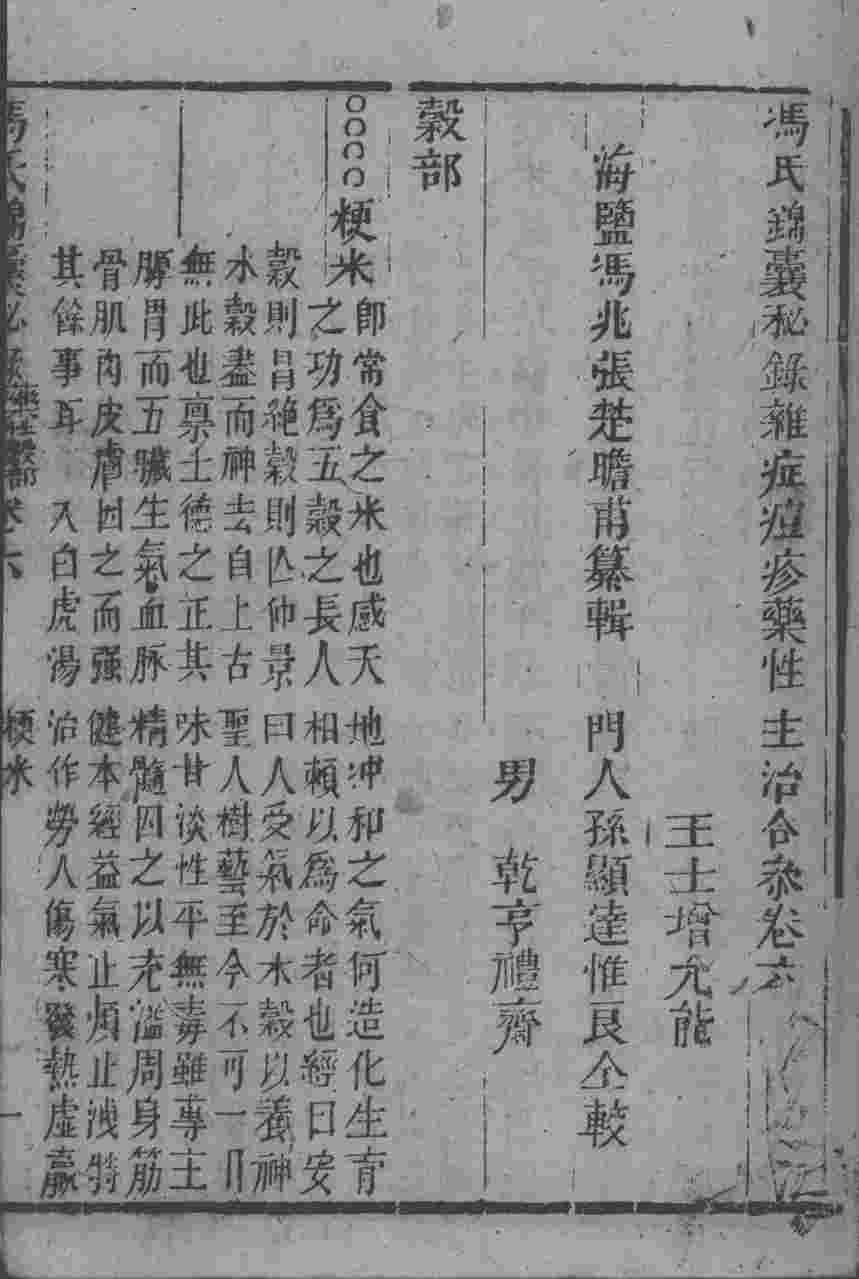 馮氏錦囊秘錄雜症痘疹藥性主治合叅卷六
王士增允能
海鹽馮兆張楚瞻甫纂輯　門人孫顯達惟良仝較
男　乾亨禮齋
穀部
粳米　卽常食之米也感天地冲和之氣同造化生育
之功爲五穀之長人相賴以爲命者也經曰安
穀則昌絶穀則亾仲景曰人受氣於水穀以養神
水穀盡而神去自上古聖人樹藝至今不可一日
無此也禀土德之正其味甘淡性平無毒雖專主
脾胃而五臟生氣血脉精髓因之以充溢周身筋
骨肌肉皮膚因之而强健本經益氣止煩止洩特
其餘事耳　入白虎湯治作勞人傷寒發熱虛羸
馮氏錦囊秘錄　藥性穀部　卷六　粳米　一